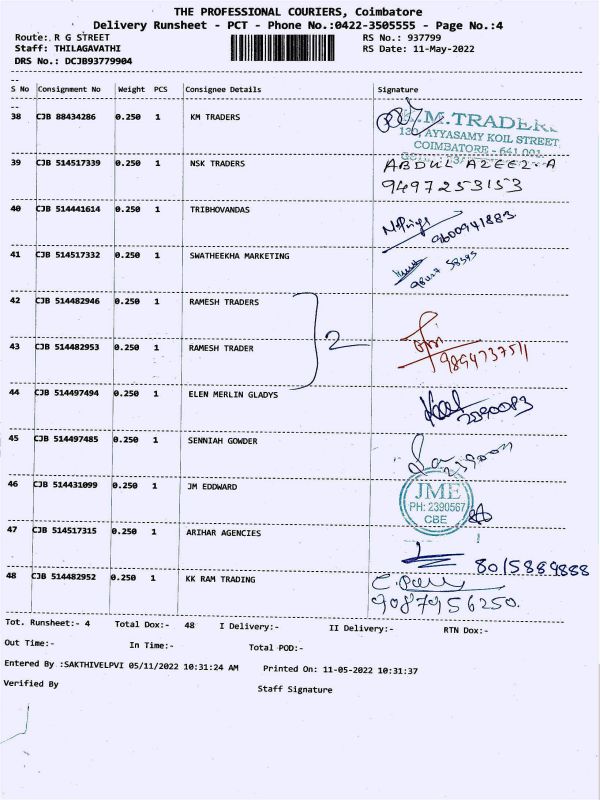 THE PROFESSIONAL COURIERS, Coimbatore
Delivery Runsheet - PCT - Phone No.:0422-3505555 - Page No.:4
Route: R G STREET RS No.: 937799
Staff: THILAGAVATHI RS Date: 11-May-2022
DRS No.: DCJB93779904
S No Consignment No Weight PCS Consignee Details Signature
38 CJB 88434286 0.250 1 KM TRADERS
M.TRADER
AYYASAMY KOIL STREET
COIMBATORE - 641 001
39 CJB 514517339 0.250 1 NSK TRADERS ABDUL AZEEZ.A
9497253153
40 CJB 514441614 0.250 1 TRIBHOVANDAS 9600941883
41 CJB 514517332 0.250 1 SWATHEEKHA MARKETING
42 CJB 514482946 0.250 1 RAMESH TRADERS
2
43 CJB 514482953 0.250 1 RAMESH TRADER 9894737511
44 CJB 514497494 0.250 1 ELEN MERLIN GLADYS 2390083
45 CJB 514497485 0.250 1 SENNIAH GOWDER
46 CJB 514431099 0.250 1 JM EDDWARD
JME
PH: 2390567
CBE
47 CJB 514517315 0.250 1 ARIHAR AGENCIES 8015889888
48 CJB 514482952 0.250 1 KK RAM TRADING
9087956250.
Tot. Runsheet:- 4 Total Dox:- 48 I Delivery:- II Delivery:- RTN Dox:-
Out Time:- In Time:- Total POD:-
Entered By :SAKTHIVELPVI 05/11/2022 10:31:24 AM Printed On: 11-05-2022 10:31:37
Verified By Staff Signature